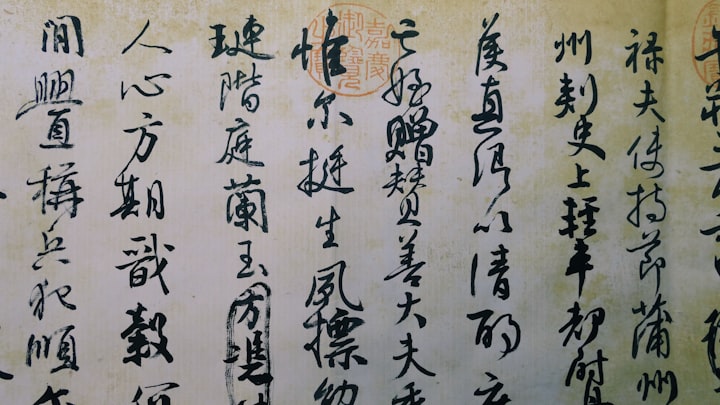 禄夫使持節蒲州
州刺史上輕車都尉
侯真卿以清酌庶
亡姪贈贊善大夫
惟尔挺生夙標幼
璉階庭蘭玉
人心方期戩穀何
間釁稱兵犯順
嘉慶